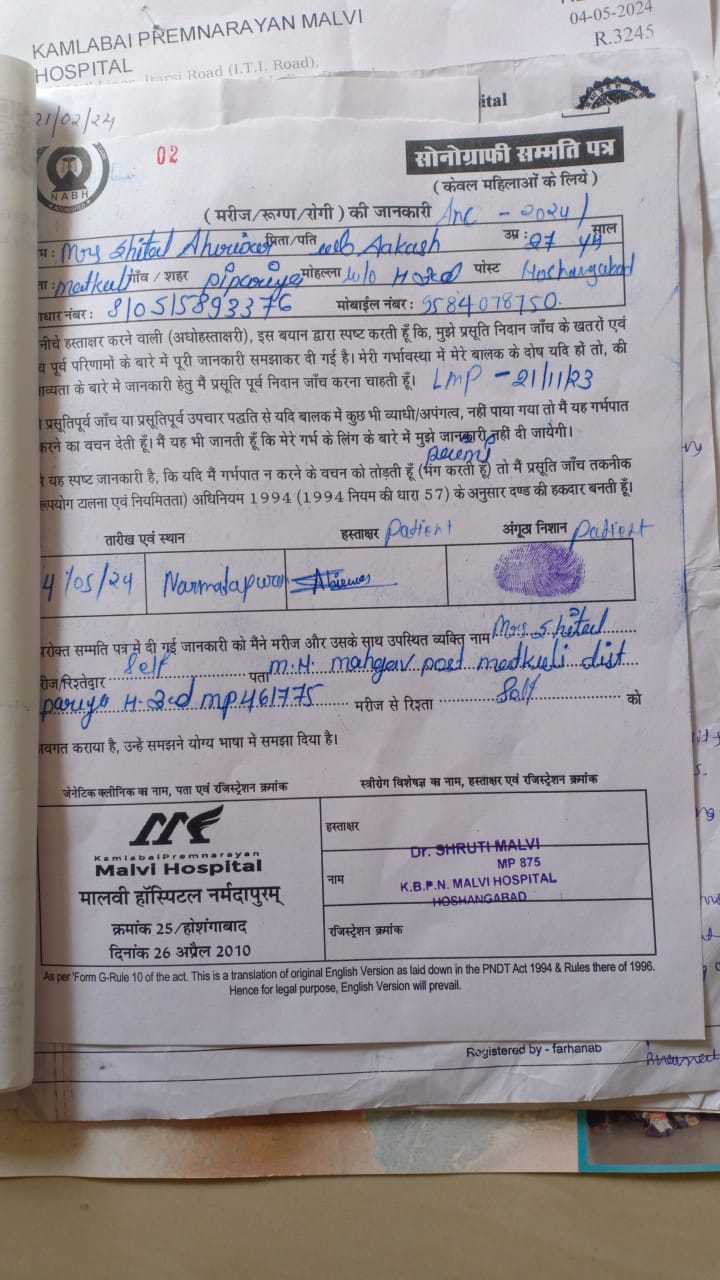 KAMLABAI PREMNARAYAN MALVI
HOSPITAL
04-05-2024
R.3245
Itarsi Road (I.T.I. Road),
ital
21/02/24
NABH
02
सोनोग्राफी सम्मति पत्र
( केवल महिलाओं के लिये )
( मरीज/रूग्ण/रोगी ) की जानकारी Anc - 2024/
म: Mrs Shital Ahirwar पिता/पति w/o Aakash उम्र: 27 yrs साल
ता: matkuli गाँव / शहर pipariya मोहल्ला पोस्ट Hoshangabad
धार नंबर: 810515893376 मोबाईल नंबर: 9584078750.
नीचे हस्ताक्षर करने वाली (अधोहस्ताक्षरी), इस बयान द्वारा स्पष्ट करती हूँ कि, मुझे प्रसूति निदान जाँच के खतरों एवं
पूर्व परिणामों के बारे में पूरी जानकारी समझाकर दी गई है। मेरी गर्भावस्था में मेरे बालक के दोष यदि हो तो, की
व्यता के बारे में जानकारी हेतु मैं प्रसूति पूर्व निदान जाँच करना चाहती हूँ। LMP - 21/11/23
प्रसूतिपूर्व जाँच या प्रसूतिपूर्व उपचार पद्धति से यदि बालक में कुछ भी व्याधी/अपंगत्व, नहीं पाया गया तो मैं यह गर्भपात
करने का वचन देती हूँ। मैं यह भी जानती हूँ कि मेरे गर्भ के लिंग के बारे में मुझे जानकारी नहीं दी जायेगी।
यह स्पष्ट जानकारी है, कि यदि मैं गर्भपात न करने के वचन को तोड़ती हूँ (भंग करती हूँ) तो मैं प्रसूति जाँच तकनीक
रूपयोग टालना एवं नियमितता) अधिनियम 1994 (1994 नियम की धारा 57) के अनुसार दण्ड की हकदार बनती हूँ।
तारीख एवं स्थान हस्ताक्षर Patient अंगूठा निशान Patient
4/05/24 Narmadapuram
परोक्त सम्मति पत्र में दी गई जानकारी को मैंने मरीज और उसके साथ उपस्थित व्यक्ति नाम Mrs. Shital
रीज/रिश्तेदार Self पता m.H. mahgav post matkuli dist
pariya H-bd mp 461775 मरीज से रिश्ता Self को
वगत कराया है, उन्हें समझने योग्य भाषा में समझा दिया है।
जेनेटिक क्लीनिक का नाम, पता एवं रजिस्ट्रेशन क्रमांक स्त्रीरोग विशेषज्ञ का नाम, हस्ताक्षर एवं रजिस्ट्रेशन क्रमांक
KamlabaiPremnarayan
Malvi Hospital
मालवी हॉस्पिटल नर्मदापुरम्
क्रमांक 25/होशंगाबाद
दिनांक 26 अप्रैल 2010
हस्ताक्षर
नाम
रजिस्ट्रेशन क्रमांक
Dr. SHRUTI MALVI
MP 875
K.B.P.N. MALVI HOSPITAL
HOSHANGABAD
As per 'Form G-Rule 10 of the act. This is a translation of original English Version as laid down in the PNDT Act 1994 & Rules there of 1996.
Hence for legal purpose, English Version will prevail.
Registered by - farhanab